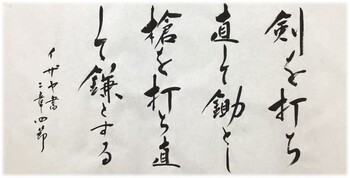 剣を打ち
直して鋤とし
槍を打ち直
して鎌とする
イザヤ書
二章四節